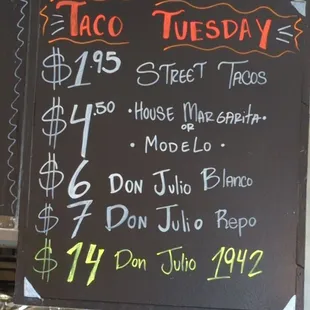 TACO TUESDAY
$1.95 STREET TACOS
$4.50 • HOUSE MARGARITA •
OR
• MODELO •
$6 DON JULIO BLANCO
$7 DON JULIO REPO
$14 DON JULIO 1942